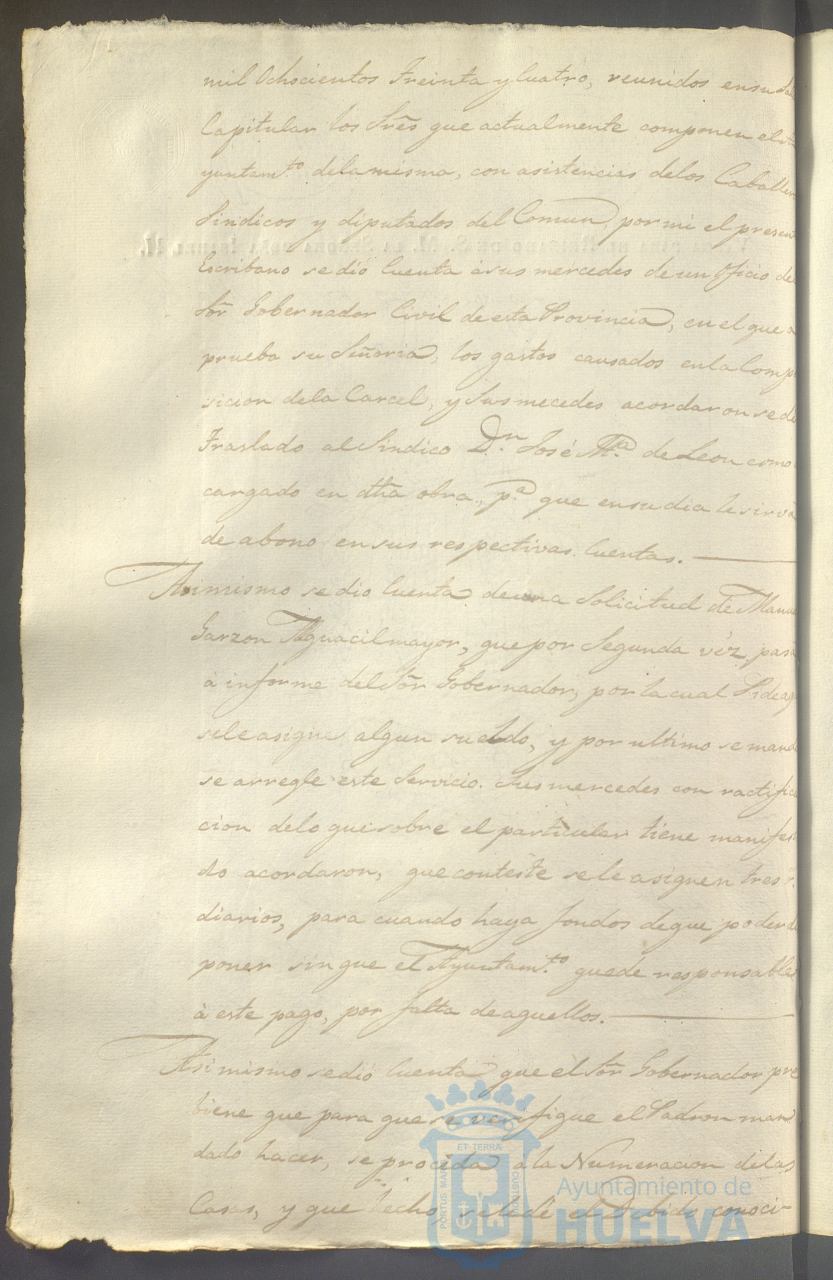 mil Ochocientos Treinta y Cuatro, reunidos en su Sa
Capitular los Sres que actualmente componen el A
yuntam.to dela misma, con asistencias delos Caballer
Sindicos y diputados del Comun, por mi el presen
Escribano se dió Cuenta à sus mercedes de un Oficio de
Sor Gobernador Civil de esta Provincia, en el que a
prueba su Señoria, los gastos causados en la Comp
sicion dela Carcel, y Sus mecedes acordaron se de
Traslado al Sindico Dn José Ma de Leon como
cargado en dha obra, pa que en su dia le sirva
de abono en sus respectivas Cuentas.
Asimismo se dio Cuenta de una Solicitud de Manue
Garzon Alguacil mayor, que por Segunda véz pasa
à informe del Sor Gobernador, por la cual Pide
se le asigne algun sueldo, y por ultimo se manda
se arregle este Servicio. Sus mercedes con ractifica
cion delo que sobre el particular tiene manifes
do acordaron, que conteste se le asignen tres r.
diarios, para cuando haya fondos de que poder di
poner sin que el Ayuntam.to quede responsable
à este pago, por falta de aquellos.
Asimismo se dió Cuenta que el Sor Gobernador pre
biene que para que se verifique el Padron man
dado hacer, se proceda à la Numeracion de las
Casas, y que hecho se le dé el Debido conoci-
ET TERRÆ
PORTUS MARIS
CUSTODIA
Ayuntamiento de
HUELVA